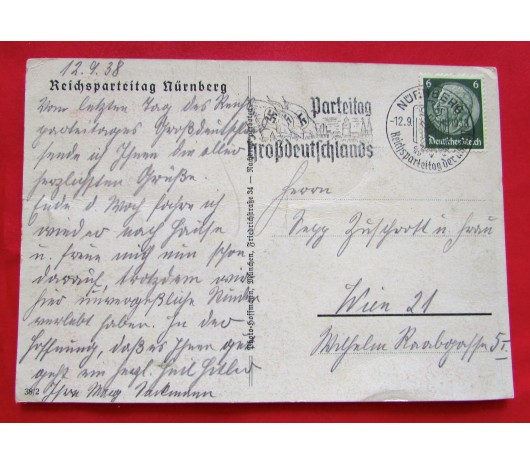 12.9.38
Reichsparteitag Nürnberg
Vom letzten Tag des Reichs
parteitages Großdeutschl.
sende ich Ihnen die aller
herzlichsten Grüße.
Ende d. Woch fahre ich
wieder nach Hause
u. freue mich nun schon
darauf, trotzdem wir
hier unvergeßliche Stunden
verlebt haben. In der
Hoffnung, daß es Ihnen gut
geht ein herzl. Heil Hitler
Ihre
38/2
Photo-Hoffmann, München, Friedrichstraße 34
Parteitag
Großdeutschlands
NÜRNBERG
12.9.
Reichsparteitag der
6 6
Deutsches Reich
Herrn
Sepp Zuschrott u. Frau
Wien 21
Wilhelm Raabgasse 5